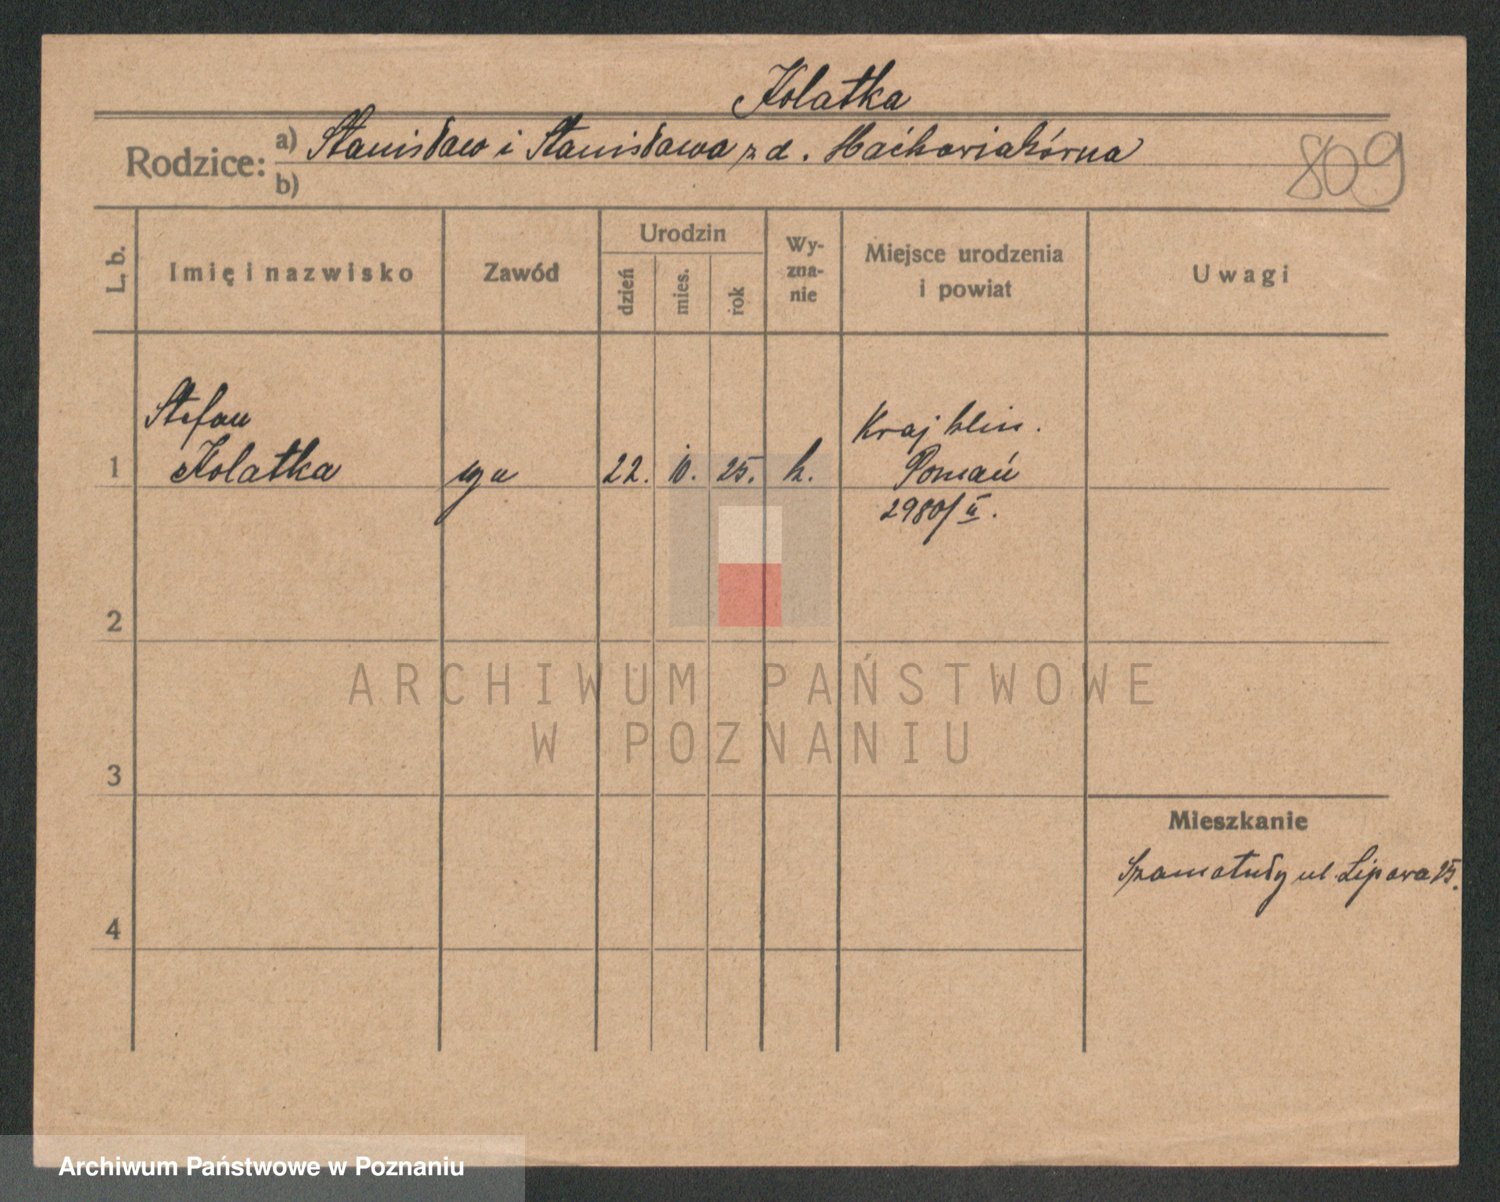 Kolatka
Rodzice: a) Stanisław i Stanisława z d. Maćkowiakówna
b)
809
L. b.
Imię i nazwisko
Zawód
Urodzin
dzień
mies.
rok
Wy-
zna-
nie
Miejsce urodzenia
i powiat
Uwagi
Stefan
Kraj klin.
1 Kolatka 22. 10. 25. k. Poznań
2980/II.
2
3
4
Mieszkanie
Szamotuły ul. Lipowa 25.
ARCHIWUM PAŃSTWOWE
W POZNANIU
Archiwum Państwowe w Poznaniu